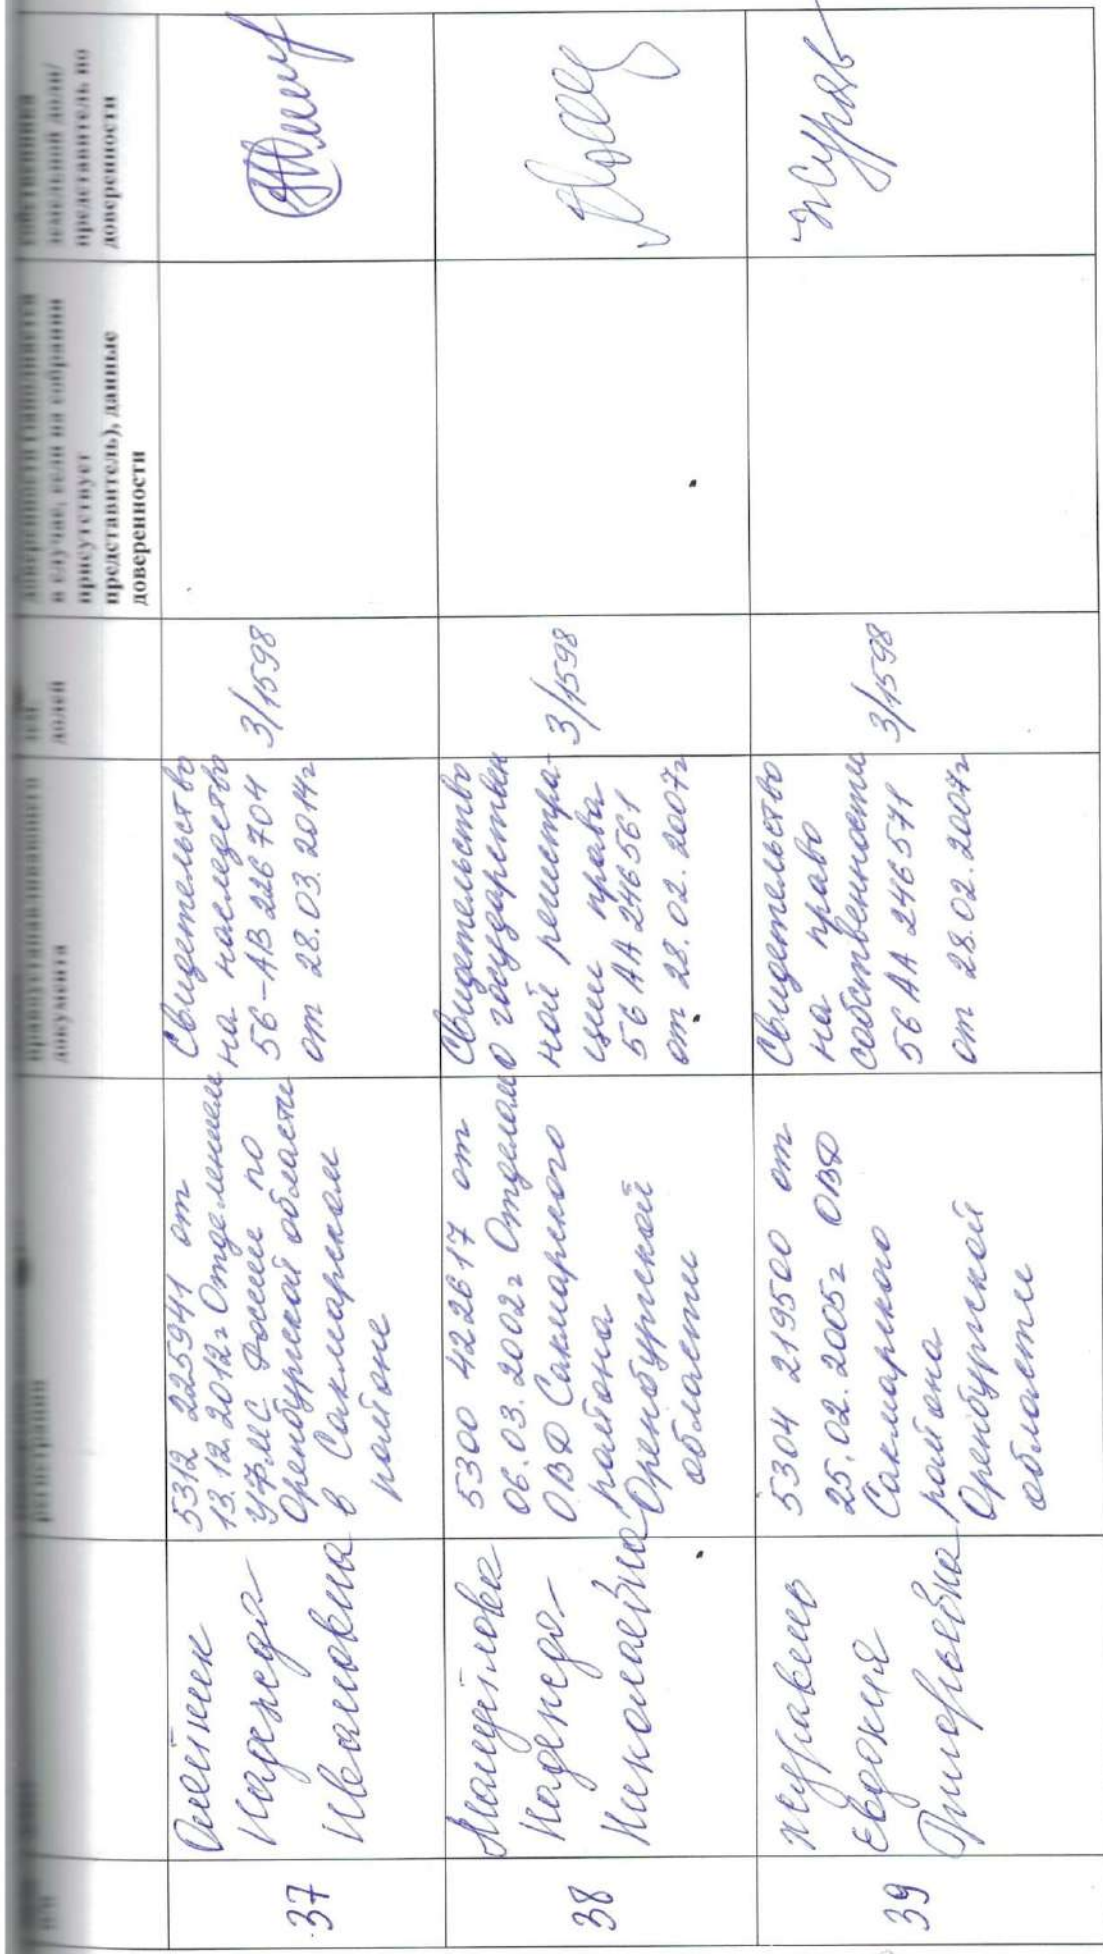 п/п
регистрации
документа
долей
в случае, если на собрании
присутствует
представитель), данные
доверенности
земельной доли/
представитель по
доверенности
37
Олейник
Надежда
Ивановна
5312 225941 от
13.12.2012г Отделением
УФМС России по
Оренбургской области
в Сакмарском
районе
Свидетельство
на наследство
56-АВ 226704
от 28.03.2014г
3/1598
38
Надежда
Николаевна
5300 422617 от
06.03.2002г Отделом
ОВД Сакмарского
района
Оренбургской
области
Свидетельство
о государствен
ной регистра-
ции права
56 АА 246561
от 28.02.2007г
3/1598
39
Журавель
Евдокия
Григорьевна
5304 219500 от
25.02.2005г ОВД
Сакмарского
района
Оренбургской
области
Свидетельство
на право
собственности
56 АА 246571
от 28.02.2007г
3/1598
Журав